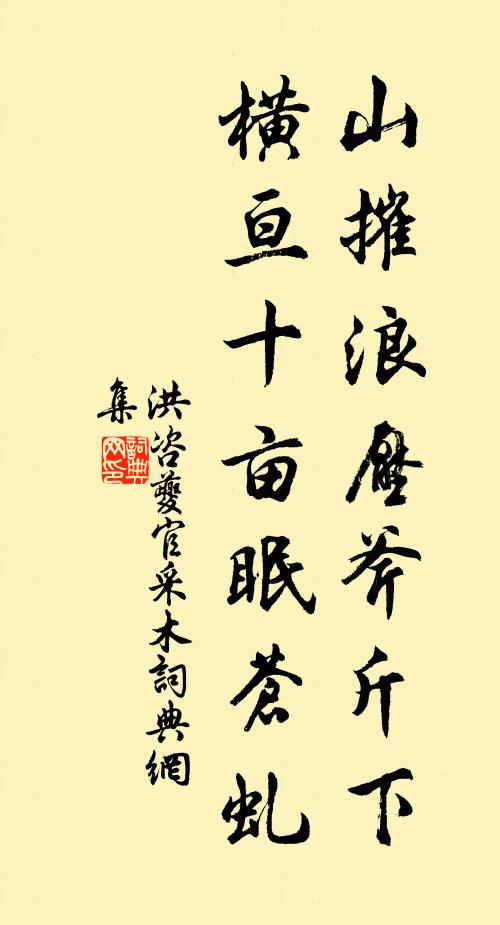 山摧浪壓斧斤下
橫亘十亩眠蒼虬
洪咨夔官采木詞典網
集
詞典
网印